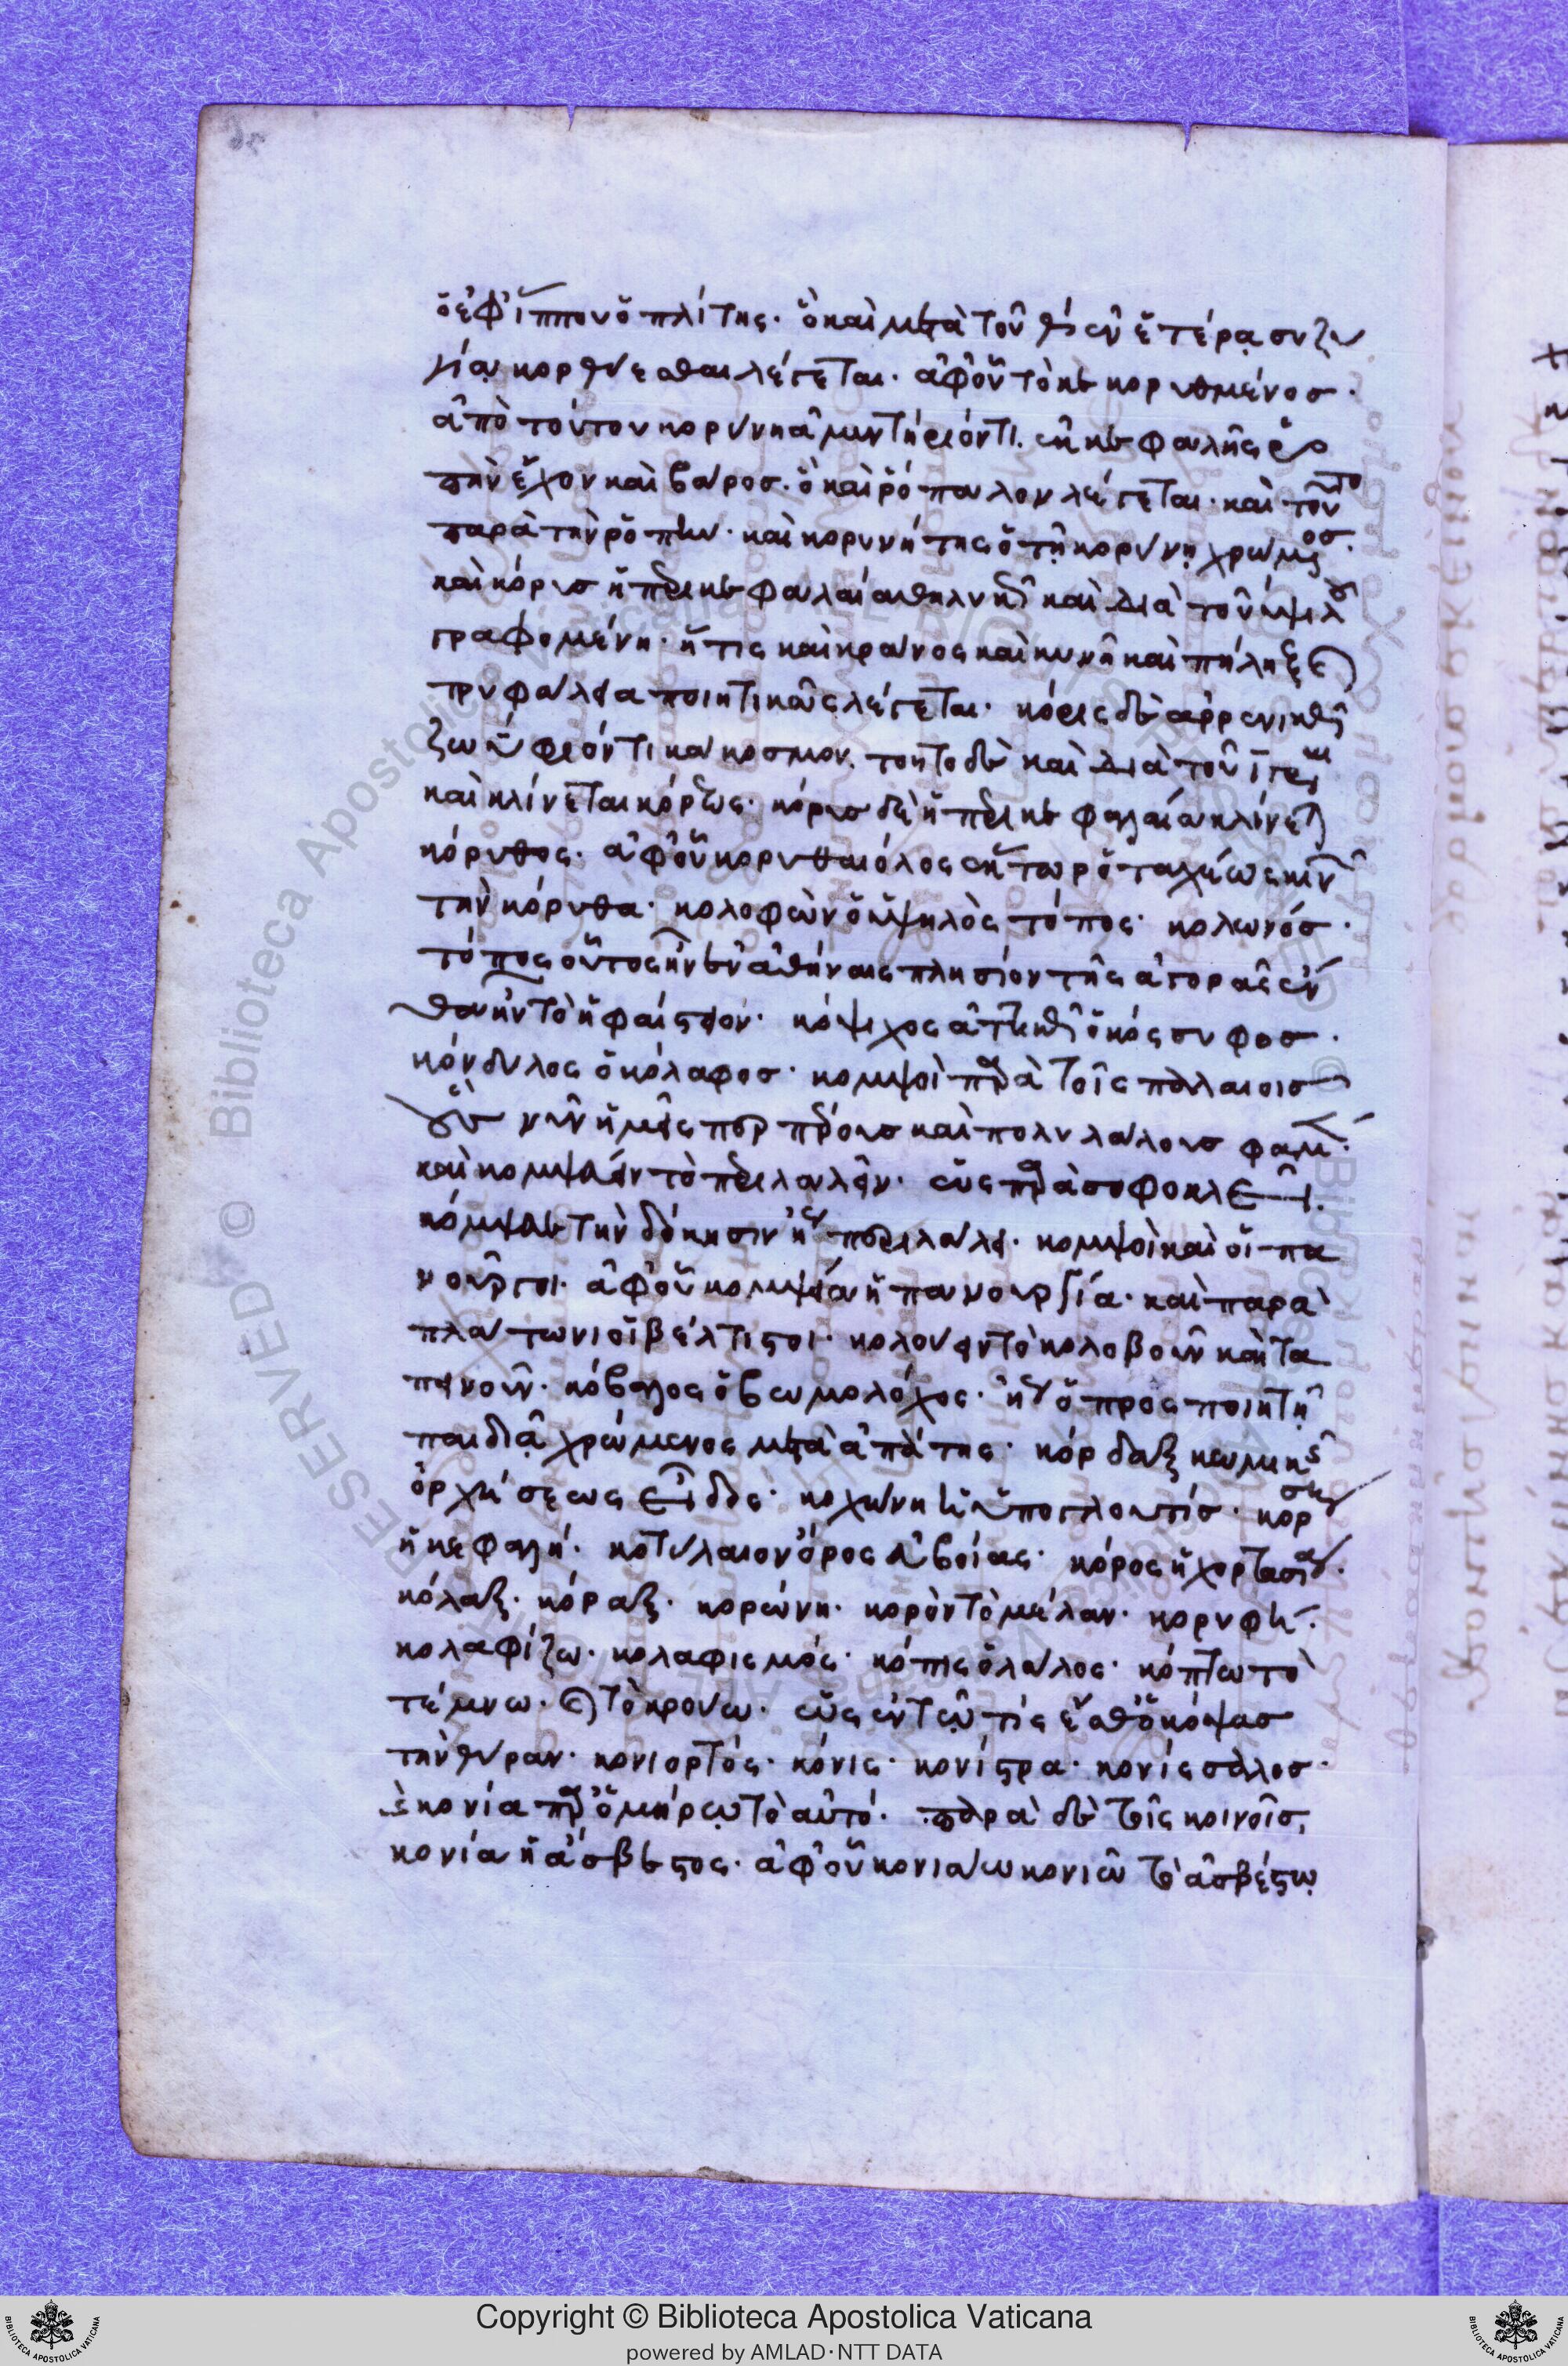 ὁ ἐφίππου ὁπλίτης. ὃ καὶ μετὰ τοῦ θ ἐν ἑτέρᾳ συζυ
γίᾳ κορθύεσθαι λέγεται. ἀφ' οὗ τὸ κεκορυθμένος.
ἀπὸ τούτου κορύνη ἀμυντήριόν τι. ἐκ κεφαλῆς
καὶ βάρος. ὃ καὶ ῥόπαλον λέγεται. καὶ τοῦτο
παρὰ τὴν ῥοπήν. καὶ κορυνήτης ὁ τῇ κορύνῃ χρώμενος.
καὶ κόρυς ἡ περικεφαλαία θηλυκῶς καὶ διὰ τοῦ υψιλοῦ
γραφομένη. ἥτις καὶ κράνος καὶ κυνῆ καὶ πήληξ καὶ
τρυφάλεια ποιητικῶς λέγεται. κόρις δὲ ἀρρενικῶς
ζωΰφιόν τι κάκοσμον. τοῦτο δὲ καὶ διὰ τοῦ ι γράφεται
καὶ κλίνεται κόρεως. κόρυς δὲ ἡ περικεφαλαία κλίνεται
κόρυθος. ἀφ' οὗ κορυθαιόλος ἕκτωρ ὁ ταχέως κινῶν
τὴν κόρυθα. κολοφὼν ὁ ὑψηλὸς τόπος. κολωνός.
τόπος οὗτος ἦν ἐν ἀθήναις πλησίον τῆς ἀγορᾶς ἐν
θα ἦν τὸ ἡφαίστειον. κόψιχος ἀττικῶς ὁ κόσσυφος.
κόνδυλος ὁ κόλαφος. κομψοὶ παρὰ τοῖς παλαιοῖς
οὓς νῦν ἡμεῖς περπέρους καὶ πολυλάλους φαμέν.
καὶ κομψεύειν τὸ περιλαλεῖν. ὡς παρὰ σοφοκλεῖ.
κόμψευε τὴν δόκησιν ἤγουν περιλάλει. κομψοὶ καὶ οἱ πα
νοῦργοι. ἀφ' οὗ κομψεία ἡ πανουργία. καὶ παρὰ
πλάτωνι οἱ βέλτιστοι. κολούειν τὸ κολοβοῦν καὶ τα
πεινοῦν. κόβαλος ὁ βωμολόχος. ἤγουν ὁ προσποιητῇ
παιδιᾷ χρώμενος μετὰ ἀπάτης. κόρδαξ κωμικῆς
ὀρχήσεως εἶδος. κοχώνη ἡ ὑπογλουτίς. κόρση
ἡ κεφαλή. κοτύλαιον ὄρος εὐβοίας. κόρος ἡ χορτασία.
κόλαξ. κόραξ. κορώνη. κορὸν τὸ μέλαν. κορυφή.
κολαφίζω. κολαφισμός. κόπις ὁ λάλος. κόπτω τὸ
τέμνω. καὶ τὸ κρούω. ὡς ἐν τῷ τίς ἔσθ' ὁ κόψας
τὴν θύραν. κονιορτός. κόνις. κονίστρα. κονίσσαλος.
κονία παρ' ὁμήρῳ τὸ αὐτό. παρὰ δὲ τοῖς κοινοῖς,
κονία ἡ ἄσβεστος. ἀφ' οὗ κονιάω κονιῶ τὸ ἀσβέστῳ
Copyright © Biblioteca Apostolica Vaticana
powered by AMLAD·NTT DATA